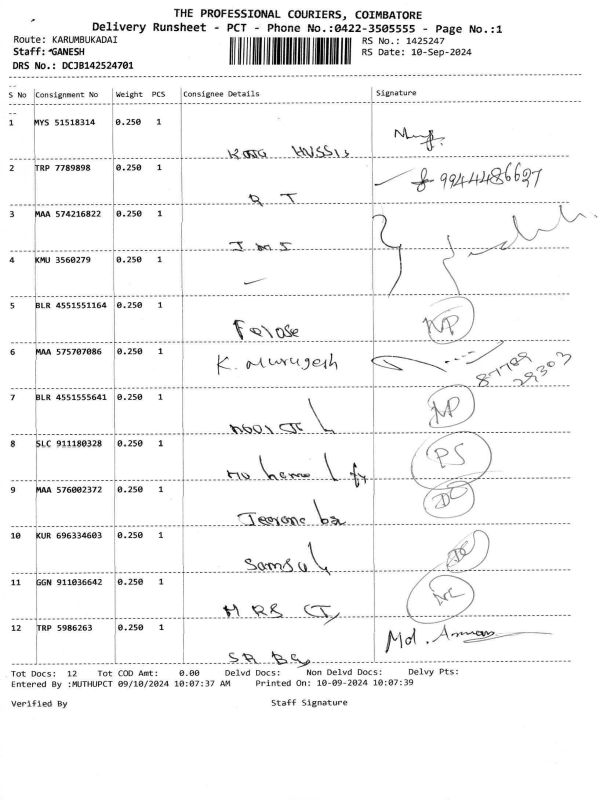 THE PROFESSIONAL COURIERS, COIMBATORE
Delivery Runsheet - PCT - Phone No.:0422-3505555 - Page No.:1
Route: KARUMBUKADAI RS No.: 1425247
Staff: GANESH RS Date: 10-Sep-2024
DRS No.: DCJB142524701
S No Consignment No Weight PCS Consignee Details Signature
1 MYS 51518314 0.250 1
2 TRP 7789898 0.250 1
R T
3 MAA 574216822 0.250 1
J M S
4 KMU 3560279 0.250 1
5 BLR 4551551164 0.250 1
Ferose NP
6 MAA 575707086 0.250 1
K. Murugesh 87709 29303
7 BLR 4551555641 0.250 1
NP
8 SLC 911180328 0.250 1
PS
9 MAA 576002372 0.250 1
DC
10 KUR 696334603 0.250 1
11 GGN 911036642 0.250 1
12 TRP 5986263 0.250 1
Md.
Tot Docs: 12 Tot COD Amt: 0.00 Delvd Docs: Non Delvd Docs: Delvy Pts:
Entered By :MUTHUPCT 09/10/2024 10:07:37 AM Printed On: 10-09-2024 10:07:39
Verified By Staff Signature